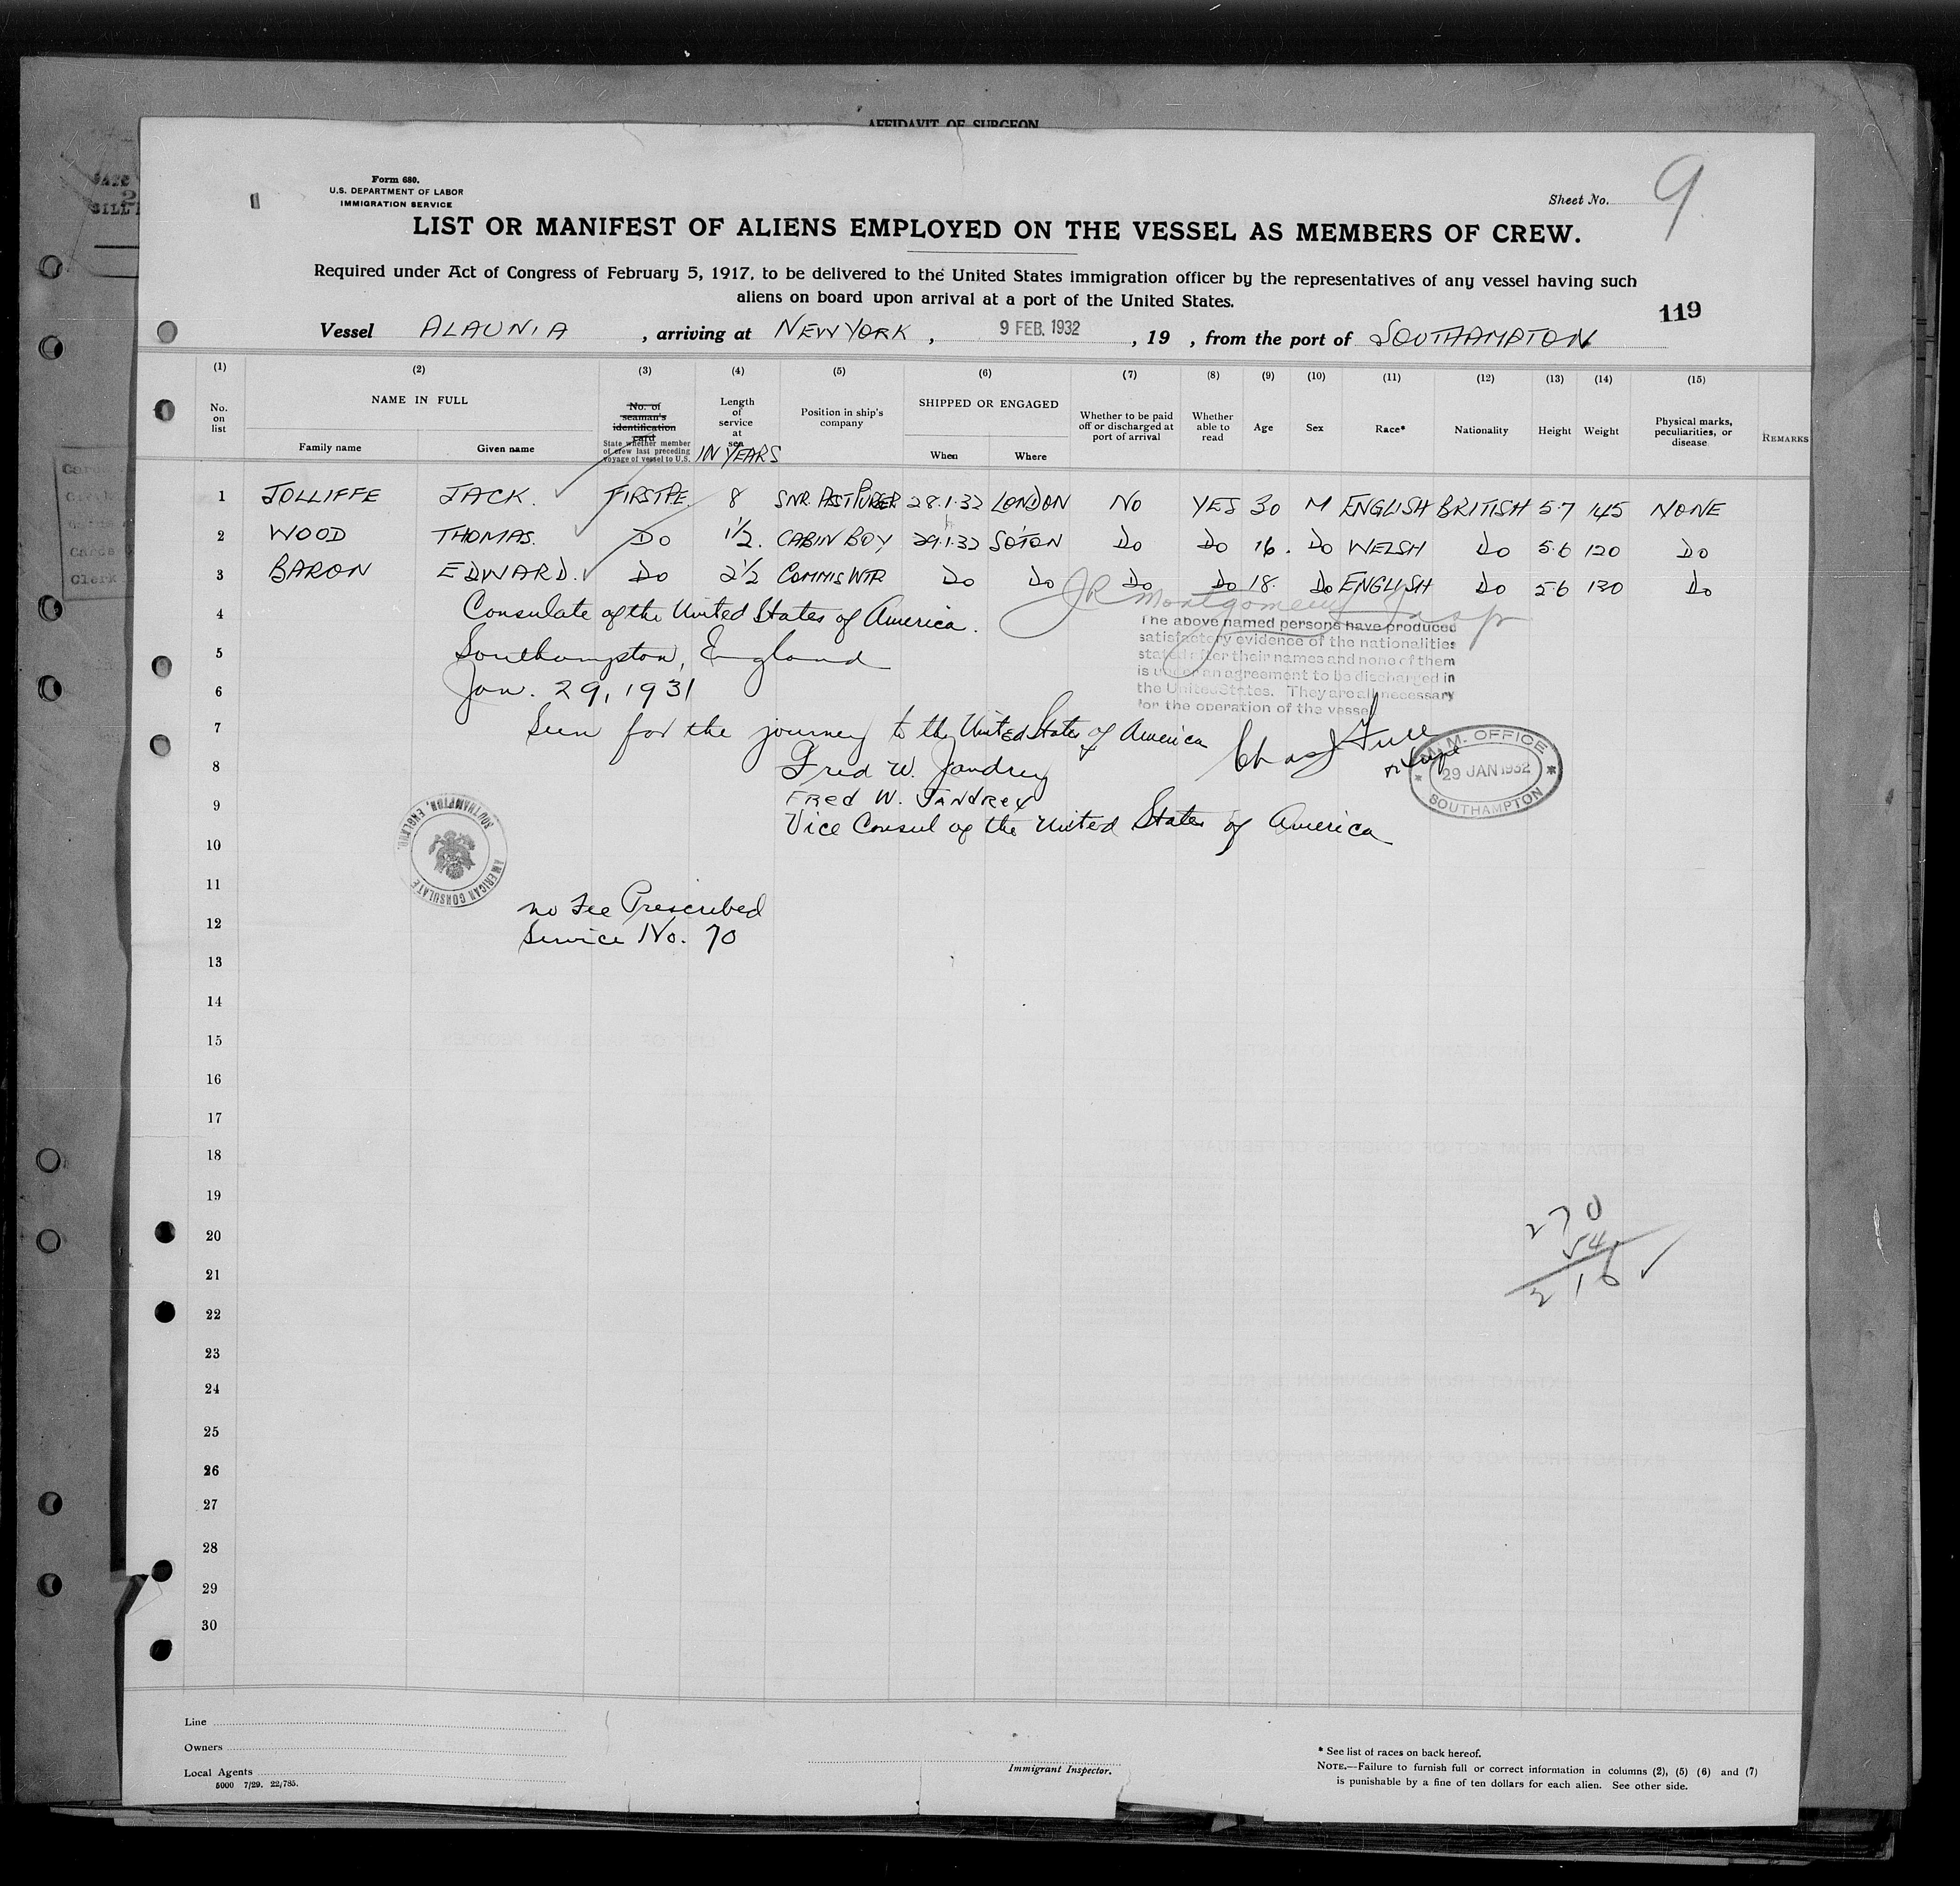 AFFIDAVIT OF SURGEON
Form 680.
U.S. DEPARTMENT OF LABOR
IMMIGRATION SERVICE
Sheet No. 9
LIST OR MANIFEST OF ALIENS EMPLOYED ON THE VESSEL AS MEMBERS OF CREW.
Required under Act of Congress of February 5, 1917, to be delivered to the United States immigration officer by the representatives of any vessel having such
aliens on board upon arrival at a port of the United States.
119
Vessel ALAUNIA , arriving at NEW YORK , 9 FEB. 1932 , 19 , from the port of SOUTHAMPTON
(1) (2) (3) (4) (5) (6) (7) (8) (9) (10) (11) (12) (13) (14) (15)
No. on list
NAME IN FULL
Family name
Given name
No. of seaman's identification card
State whether member of crew last preceding voyage of vessel to U.S.
Length of service at sea
IN YEARS
Position in ship's company
SHIPPED OR ENGAGED
When
Where
Whether to be paid off or discharged at port of arrival
Whether able to read
Age
Sex
Race*
Nationality
Height
Weight
Physical marks, peculiarities, or disease
REMARKS
1 JOLLIFFE JACK. 8 SNR. 28.1.32 LONDON NO YES 30 M ENGLISH BRITISH 5.7 145 NONE
2 WOOD THOMAS. DO 1½. CABIN BOY 29.1.32 SOTON DO DO 16. DO WELSH DO 5.6 120 DO
3 BARON EDWARD. DO 2½ COMMIS WTR DO DO DO DO 18. DO ENGLISH DO 5.6 130 DO
JR Montgomery Insp
4 Consulate of the United States of America.
5 Southampton, England
6 Jan. 29, 1931
The above named persons have produced
satisfactory evidence of the nationalities
stated after their names and none of them
is under an agreement to be discharged in
the United States. They are all necessary
for the operation of the vessel
7 Seen for the journey to the United States of America
8 Fred W. Jandrey
9 FRed W. JANDRey
Vice Consul of the United States of America
M.M. OFFICE
29 JAN 1932
SOUTHAMPTON
10
AMERICAN CONSULATE
SOUTHAMPTON, ENGLAND.
11 no Fee Prescribed
12 Service No. 70
13
14
15
16
17
18
19
20
21
22
23
24
25
26
27
28
29
30
270
54
216 ✓
Line
Owners
Local Agents
5000 7/29. 22,785.
Immigrant Inspector.
* See list of races on back hereof.
NOTE.—Failure to furnish full or correct information in columns (2), (5) (6) and (7)
is punishable by a fine of ten dollars for each alien. See other side.